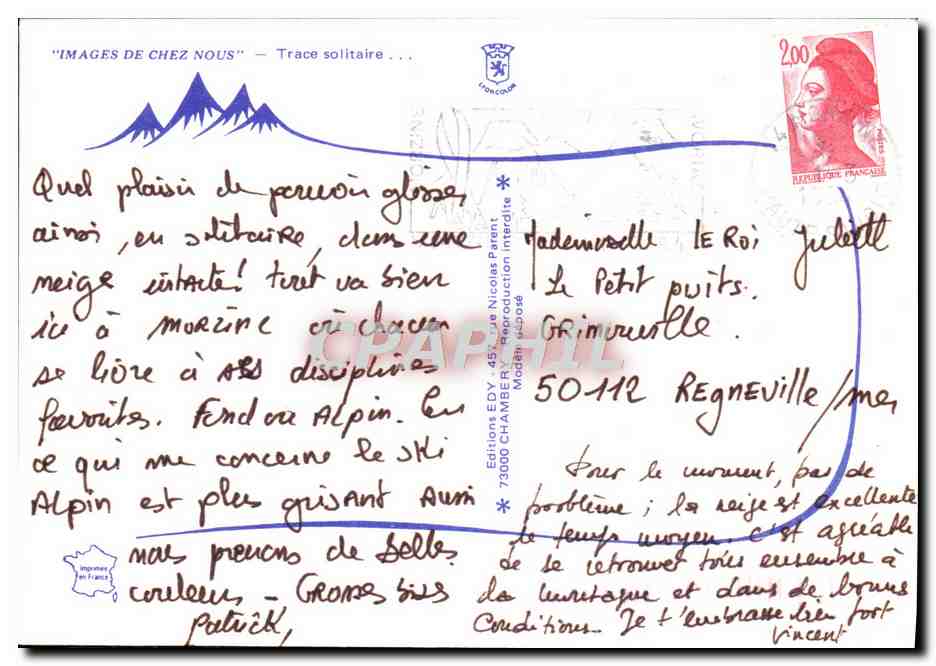 "IMAGES DE CHEZ NOUS" — Trace solitaire ...
LYONCOLOR
2,00
POSTES
REPUBLIQUE FRANÇAISE
Quel plaisir de pouvoir glisser
ainsi, en solitaire, dans une
neige intacte! tout va bien
ici à MORZINE où chacun
se livre à ses disciplines
favorites. Fond ou Alpin. En
ce qui me concerne le ski
Alpin est plus grisant Aussi
nous prenons de belles
couleurs - Grosses bises
Patrick,
* Editions EDY - 457, rue Nicolas Parent
73000 CHAMBERY - Reproduction interdite *
Modèle déposé
Mademoiselle LE ROI Juliette
Le Petit puits.
GRimouville.
50112 REgNEville/mer
Pour le moment, pas de
problème ; la neige est excellente
le temps moyen. C'est agréable
de se retrouver tous ensemble à
la montagne et dans de bonnes
conditions. Je t'embrasse bien fort
Vincent
Imprimée
en France
CPAPHIL